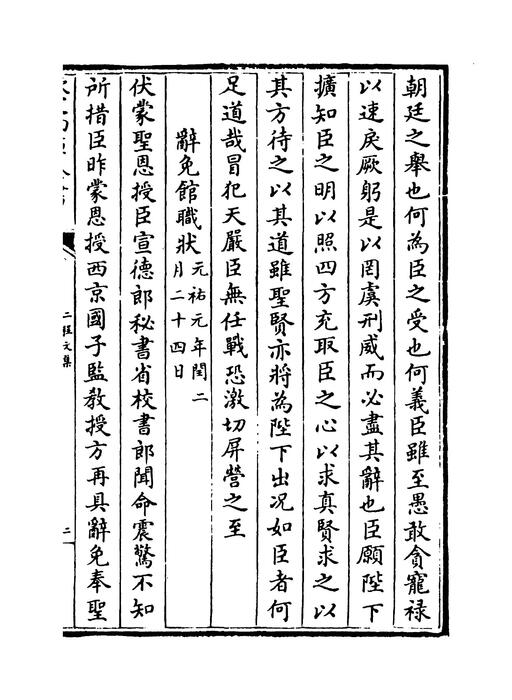 朝廷之舉也何為臣之受也何義臣雖至愚敢貪寵禄
以速戾厥躬是以罔虞刑威而必盡其辭也臣願陛下
擴知臣之明以照四方充取臣之心以求真賢求之以
其方待之以其道雖聖賢亦將為陛下出况如臣者何
足道哉冒犯天嚴臣無任戰恐激切屏營之至
辭免館職狀
元祐元年閏二
月二十四日
伏蒙聖恩授臣宣德郎秘書省校書郎聞命震驚不知
所措臣昨蒙恩授西京國子監教授方再具辭免奉聖
二程文集
二